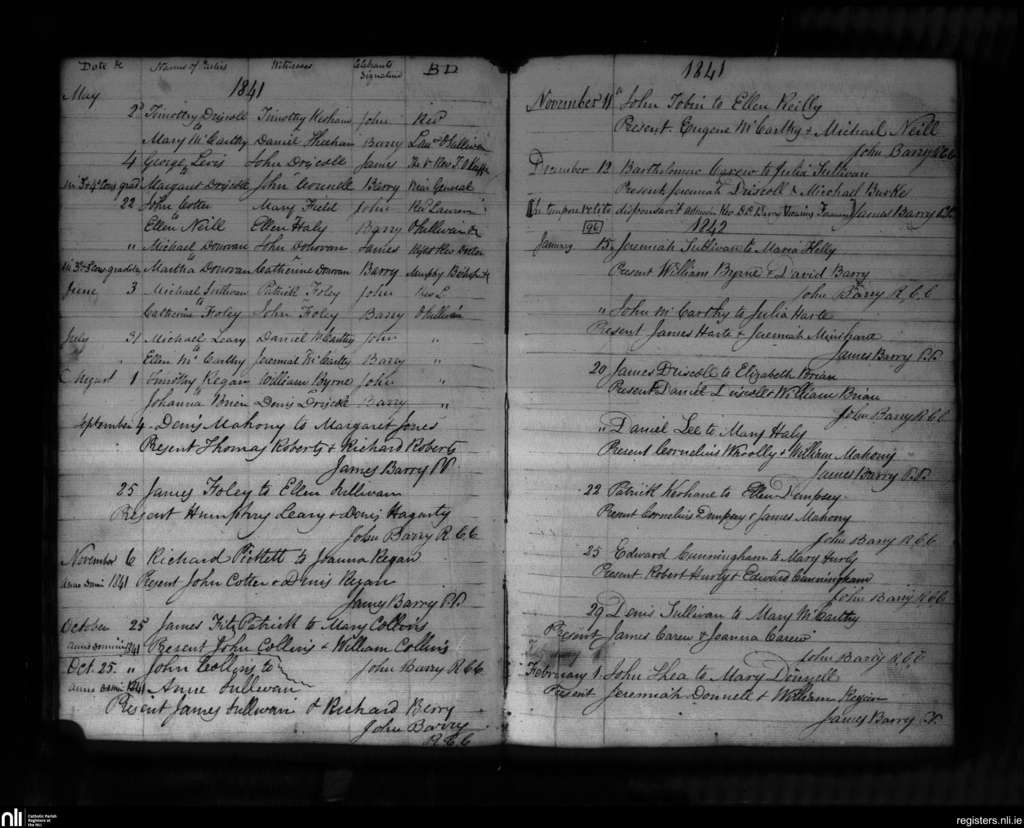 Date &c Names of Parties Witnesses Celebrants Signature B D
1841
May
2d Timothy Driscoll Timothy Keohane John Revd
to
Mary McCarthy Daniel Sheehan Barry Lau. O'Sullivan
4 George Levis John Driscoll James &
in 3 & 4 Cons grad Margaret Driscoll John Connell Barry General
22 John Cotter Mary Field John Revd Laurence
to
Ellen Neill Ellen Haly Barry O'Sullivan
" Michael Donovan John Donovan James Right Rev Doctor
in 3o Cons gradu Martha Donovan Catherine Donovan Barry Murphy Bishop
June 3 Michael Sullivan Patrick Foley John Rev L.
to
Catherine Foley John Foley Barry O'Sullivan
July 31 Michael Leary Daniel McCarthy John "
Ellen McCarthy Jeremiah McCarthy Barry "
August 1 Timothy Regan William Byrne John "
to
Johanna Brien Denis Driscoll Barry "
September 4 Denis Mahony to Margaret Jones
Present Thomas Roberts & Richard Roberts
James Barry P.P.
25 James Foley to Ellen Sullivan
Present Humphry Leary & Denis Hagarty
John Barry R.C.C
November 6 Richard Pickett to Joanna Regan
anno domi 1841 Present John Cotter & Denis Regan
James Barry P.P.
October 25 James Fitz Patrick to Mary Collins
anno domini 1841 Present John Collins & William Collins
Oct. 25. " John Collins to John Barry R.C.C
anno domi 1841 Anne Sullivan
Present James Sullivan & Richard Berry
John Barry
R.C.C
1841
November 11th John Tobin to Ellen Reilly
Present Eugene McCarthy & Michael Neill
John Barry R.C.C
December 12 Bartholomew Carew to Julia Sullivan
Present Jeremiah Driscoll & Michael Burke
In tempore vetito dispensavit Rev Dr Barry Vicarius James Barry P.P.
96
1842
January 15 Jeremiah Sullivan to Maria Kelly
Present William Byrne & David Barry
John Barry R.C.C
" John McCarthy to Julia Harte
Present James Harte & Jeremiah Minehane
James Barry P.P.
20 James Driscoll to Elizabeth Brian
Present Daniel Driscoll & William Brian
John Barry R.C.C
" Daniel Lee to Mary Haly
Present Cornelius Woolly & William Mahony
James Barry P.P.
22 Patrick Keohane to Ellen Dempsey
Present Cornelius Dempsey & James Mahony
John Barry R.C.C
25 Edward Cunningham to Mary Hurly
Present Robert Hurly & Edward Cunningham
John Barry R.C.C
29 Denis Sullivan to Mary McCarthy
Present James Carew & Joanna Carew
John Barry R.C.C
February 1 John Shea to Mary Dinneell
Present Jeremiah Donnell & William Regan
James Barry P.
nli Catholic Parish Registers at the NLI
registers.nli.ie